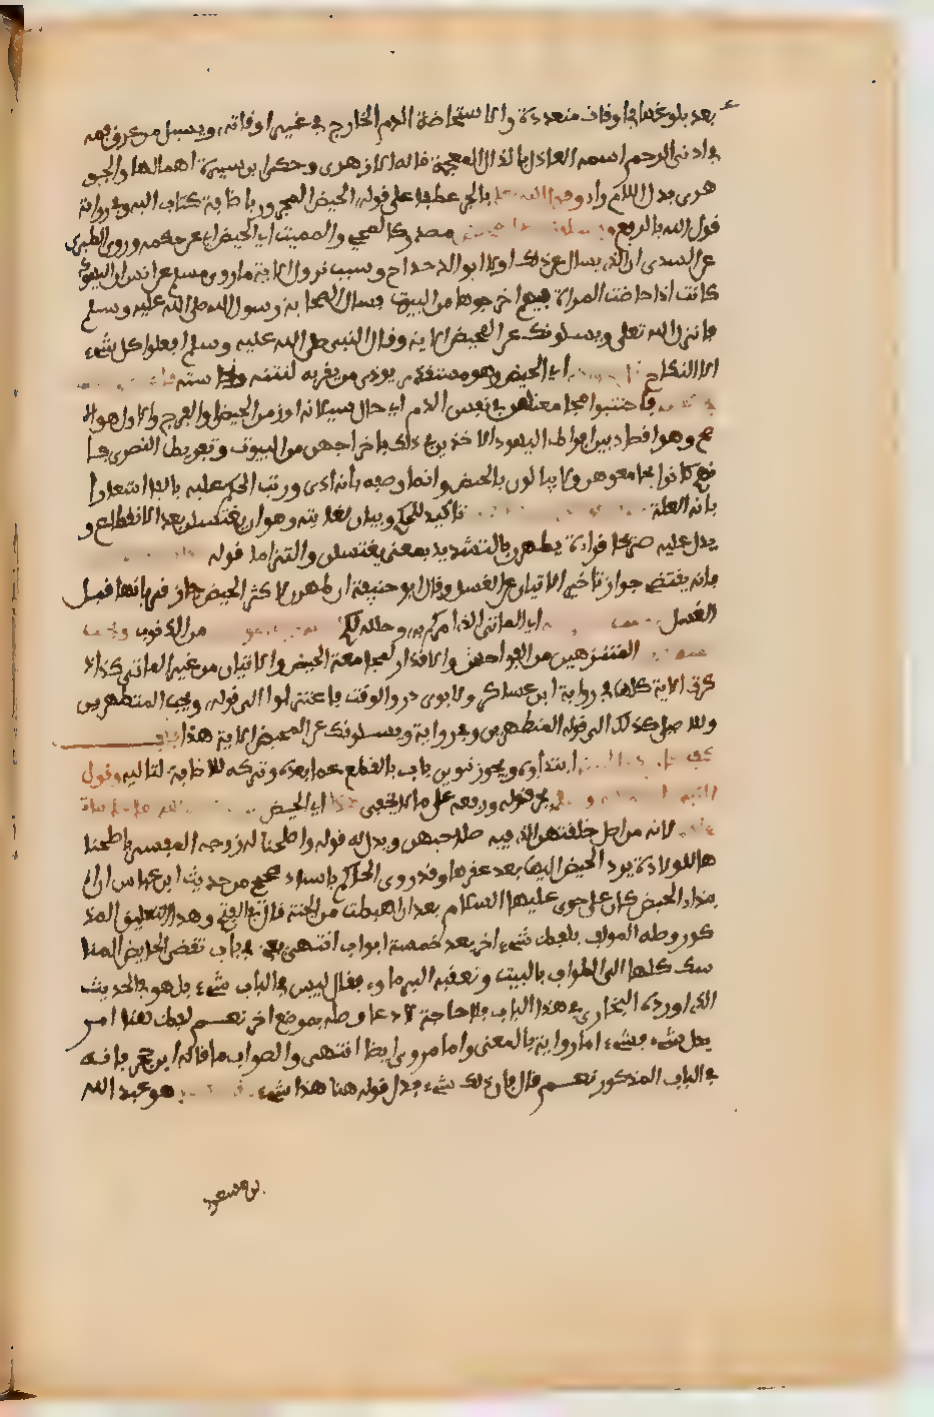 بعد بلوغها في اوقات متعددة والاستحاضة الدم الخارج في غير اوقاته ويسيل من عرق فمه
في ادنى الرحم اسمه العاذل بالذال المعجمة قاله الازهري وحكى ابن سيدة اهمالها والجو
هري بدل اللام راء وقول الله بالجر عطفا على قوله الحيض المجرور باضافة كتاب اليه وفي رواية
قول الله بالرفع مصدر كالمجيء والمبيت اي الحيض اي عن حكمه وروى الطبري
عن السدي ان الذي سال عن ذلك اولا ابو الدحداح وسبب نزول الاية ما روى مسلم عن انس ان اليهود
كانت اذا حاضت المراة فيهم اخرجوها من البيوت فسال الصحابة رسول الله صلى الله عليه وسلم
فانزل الله تعلى ويسلونك عن المحيض الاية وقال النبي صلى الله عليه وسلم افعلوا كل شيء
الا النكاح اي الحيض وهو مستقذر يوذي من يقربه لنتنه ونجاسته
فاجتنبوا مجامعتهن في نفس الدم اي حال سيلانه او زمن الحيض او الفرج والاول هو الا
صح وهو اقتصاد بين افراط اليهود الاخذين في ذلك باخراجهن من البيوت وتفريط النصرى فا
نهم كانوا يجامعوهن ولا يبالون بالحيض وانما وصفه بانه اذى ورتب الحكم عليه بالفا اشعارا
بانه العلة تاكيد للحكم وبيان لغايته وهو ان يغتسلن بعد الانقطاع و
يدل عليه صريحا قراءة يطهرن بالتشديد بمعنى يغتسلن والتزاما قوله
فانه يقتضي جواز تاخير الاتيان عن الغسل وقال ابو حنيفة ان طهرن لاكثر الحيض جاز قربانها قبل
الغسل اي الماتى الذي امركم به وحلله لكم من الذنوب
المتنزهين من الفواحش والاقذار كمجامعة الحيض والاتيان من غير الماتى كذا ذ
كرت الاية كلها في رواية ابن عساكر ولابوي ذر والوقت فاعتزلوا الى قوله ويحب المتطهرين
وللاصيلي كذلك الى قوله المتطهرين وفي رواية ويسلونك عن المحيض الاية هذا باب
كيف كان ابتداوه ويجوز تنوين باب بالقطع عما بعده وتركه للاضافة لتاليه وقول
النبي بجر قوله ورفعه على ما لا يخفى هذا اي الحيض
لانه من اصل خلقتهن الذي فيه صلاحهن ويدل له قوله واصلحنا له زوجه المفسر باصلحنا
ها للولادة برد الحيض اليها بعد عقرها وقد روى الحاكم باسناد صحيح من حديث ابن عباس ان ا
بتداء الحيض كان على حوى عليها السلام بعد ان اهبطت من الجنة قال في الفتح وهذا التعليق المذ
كور وصله المولف بلفظ شيء اخر بعد خمسة ابواب انتهى يعني في باب تقضي الحايض المنا
سك كلها الى الطواف بالبيت وتعقبه البرماوي فقال ليس في الباب شيء بل هو في الحديث
الذي اورده البخاري في هذا الباب فلا حاجة لادعا وصله بموضع اخر نعم لفظه هنا امر
بدل شيء فشيء اما رواية بالمعنى واما مروي ايضا انتهى والصواب ما قاله ابن حجر فانه
في الباب المذكور نعم قال فان ذلك شيء بدل قوله هنا هذا شيء هو عبد الله
بن مسعود